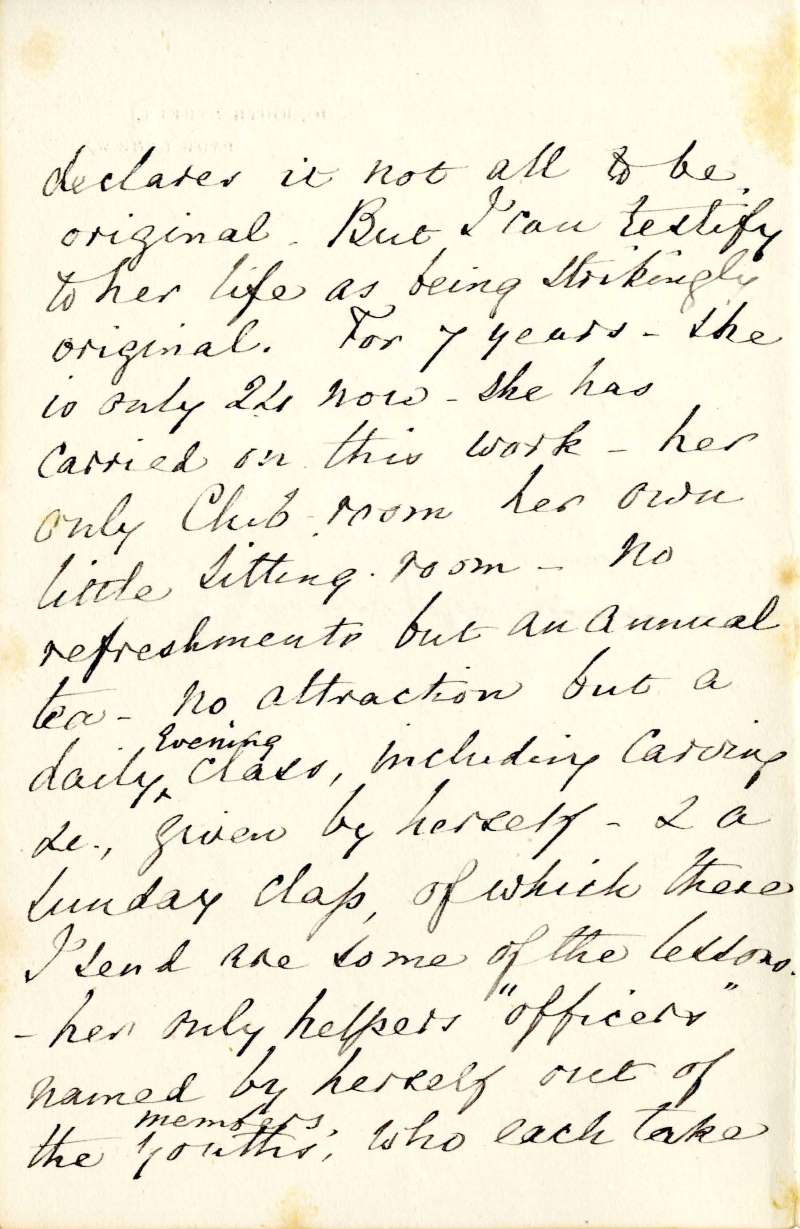 declares it not all to be
original. But I can testify
to her life as being strikingly
original. For 7 years - she
is only 24 now - she has
carried on this work - her
only Club-room her own
little sitting-room - no
refreshments but an annual
tea - no attraction but a
Evening
daily class, including carving
&c., given by herself - & a
Sunday class, of which these
I send are some of the lessons.
- her only helpers "officers"
named by herself out of
members
the youths', who each take